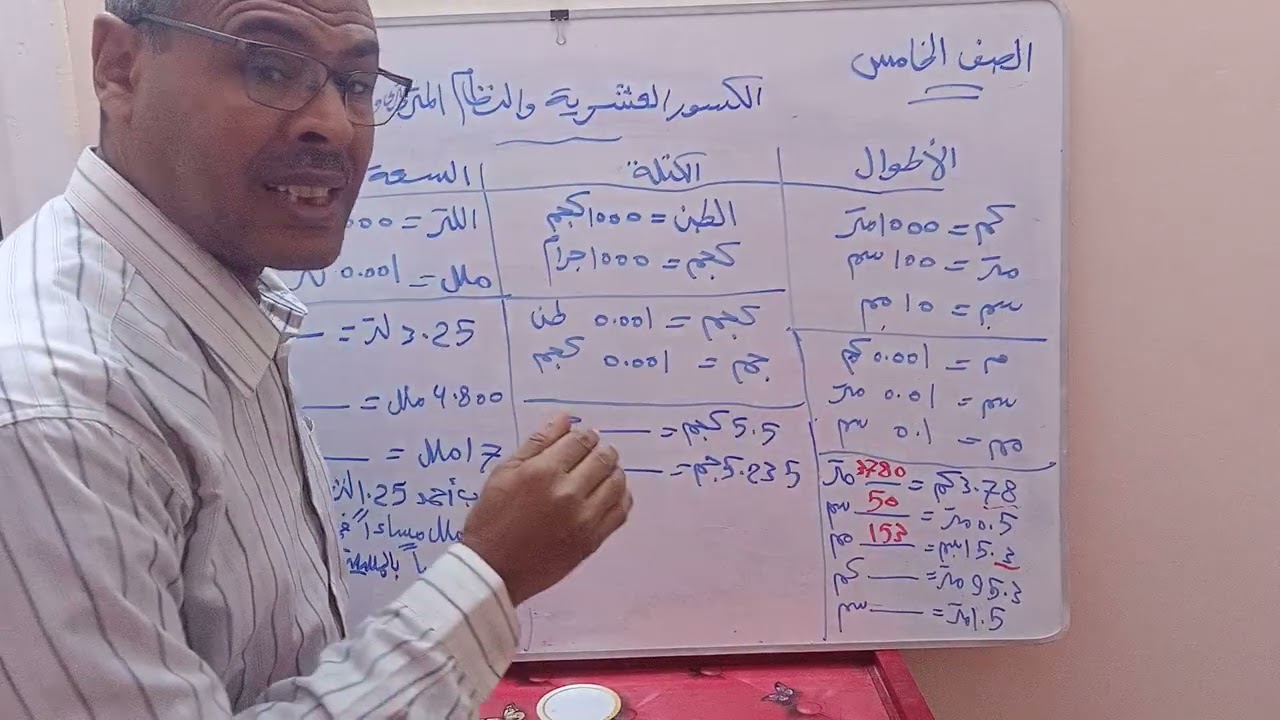 الصف الخامس
الكسور العشرية والنظام
الأطوال
كم = 1000 متر
متر = 100 سم
سم = 10 مم
م = 0.001 كم
سم = 0.01 متر
مم = 0.1 سم
3.78 كم = 3780 متر
0.5 متر = 50 سم
15.3 سم = 153 مم
95.3 متر = ____ كم
1.5 متر = ____ سم
الكتلة
الطن = 1000 كجم
كجم = 1000 جرام
كجم = 0.001 طن
جم = 0.001 كجم
5.5 كجم = ____
5.235 جم = ____
السعة
اللتر =
ملل = 0.001
3.25 لتر = ____
4.800 ملل = ____
17 ملل = ____
أحمد 1.25
ملل مساءً